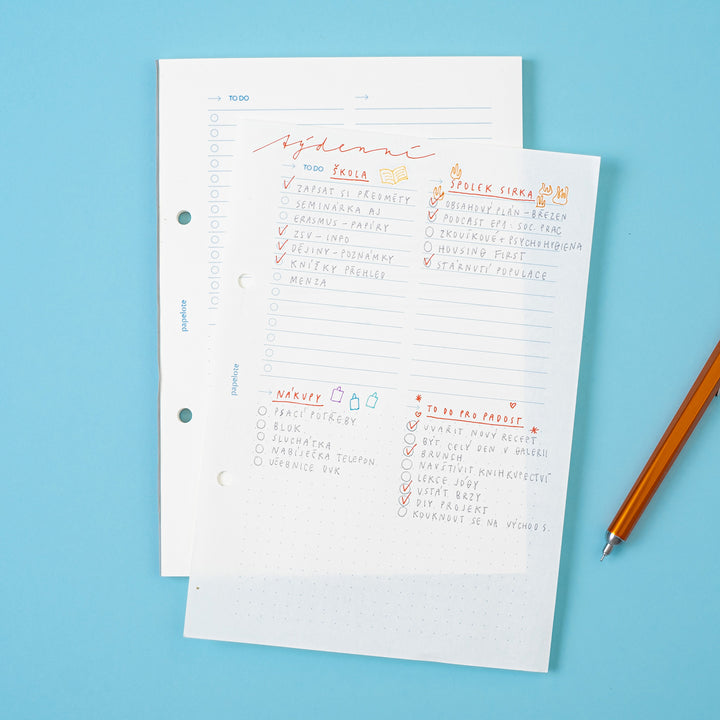 TO DO
papelote
týdenní
TO DO ŠKOLA
ZAPSAT SI PŘEDMĚTY
SEMINÁRKA AJ
ERASMUS - PAPÍRY
ZSV - INFO
DĚJINY - POZNÁMKY
KNÍŽKY PŘEHLED
MENZA
SPOLEK SIRKA
OBSAHOVÝ PLÁN - BŘEZEN
PODCAST EP1 - SOC. PRAC
ZKOUŠKOVÉ + PSYCHOHYGIENA
HOUSING FIRST
STÁRNUTÍ POPULACE
papelote
NÁKUPY
PSACÍ POTŘEBY
BLOK
SLUCHÁTKA
NABÍJEČKA TELEFON
UČEBNICE DUK
TO DO PRO RADOST
UVAŘIT NOVÝ RECEPT
BÝT CELÝ DEN V GALERII
BRUNCH
NAVŠTÍVIT KNIHKUPECTVÍ
LEKCE JÓGY
VSTÁT BRZY
DIY PROJEKT
KOUKNOUT SE NA VÝCHOD S.